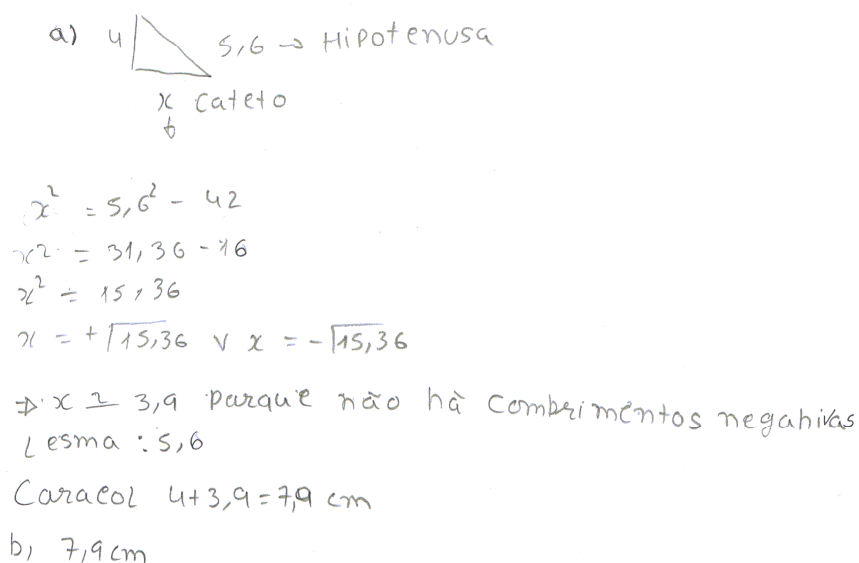 a) 4 5,6 → Hipotenusa
x cateto
b
x² = 5,6² - 42
x2 = 31,36 - 16
x² = 15,36
x = +√15,36 v x = -√15,36
⇒ x ≃ 3,9 parque não hà combrimentos negativas
Lesma : 5,6
Caracol 4+3,9 = 7,9 cm
b) 7,9 cm